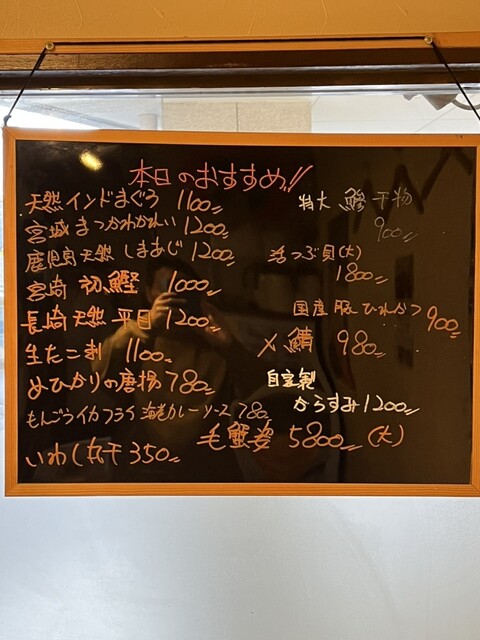 本日のおすすめ!!
天然インドまぐろ 1100
宮城まつかわかれい 1200
鹿児島天然しまあじ 1200
宮崎 初鰹 1000
長崎天然平目 1200
生たこ刺 1100
めひかりの唐揚 780
もんごうイカフライ海老カレーソース 780
いわし丸干 350
特大 鯵干物
900
活つぶ貝(大)
1800
国産豚ひれかつ 900
〆鯖 980
自家製
からすみ 1200
毛蟹姿 5800 (大)